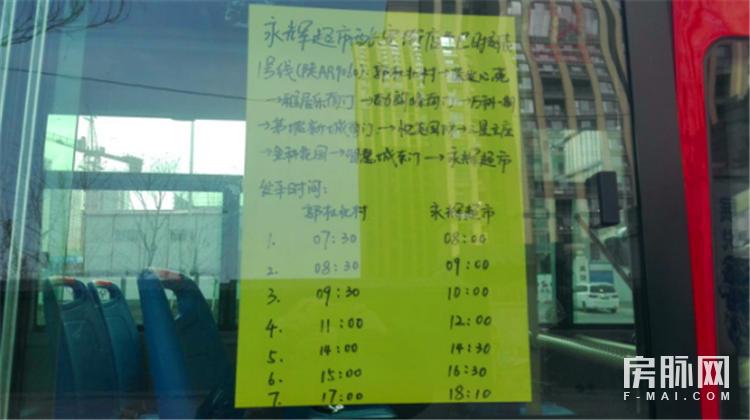 永辉超市西长安街店班时刻表
1号线 郭杜北村→
→雅居乐南门→ →万科
→第 新城南门→ →三星立座
→金科花园→智慧城东门→永辉超市
发车时间：
郭杜北村 永辉超市
1. 07:30 08:00
2. 08:30 09:00
3. 09:30 10:00
4. 11:00 12:00
5. 14:00 14:30
6. 15:00 16:30
7. 17:00 18:10
房脉网
F-MAI.COM